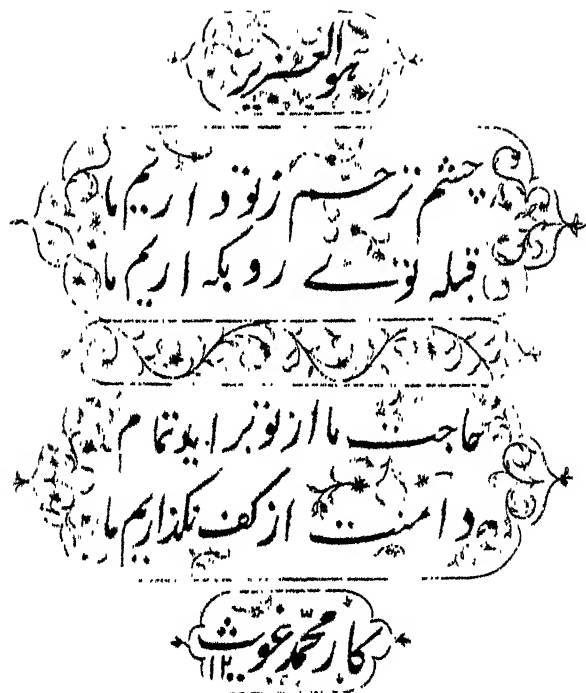 هو العزیز
چشم ترحم ز تو داریم ما
قبله توئے رو بکه اریم ما
حاجت ما از تو براید تمام
دامنت از کف نگذاریم ما
کار محمد غوث
۱۲۰۰